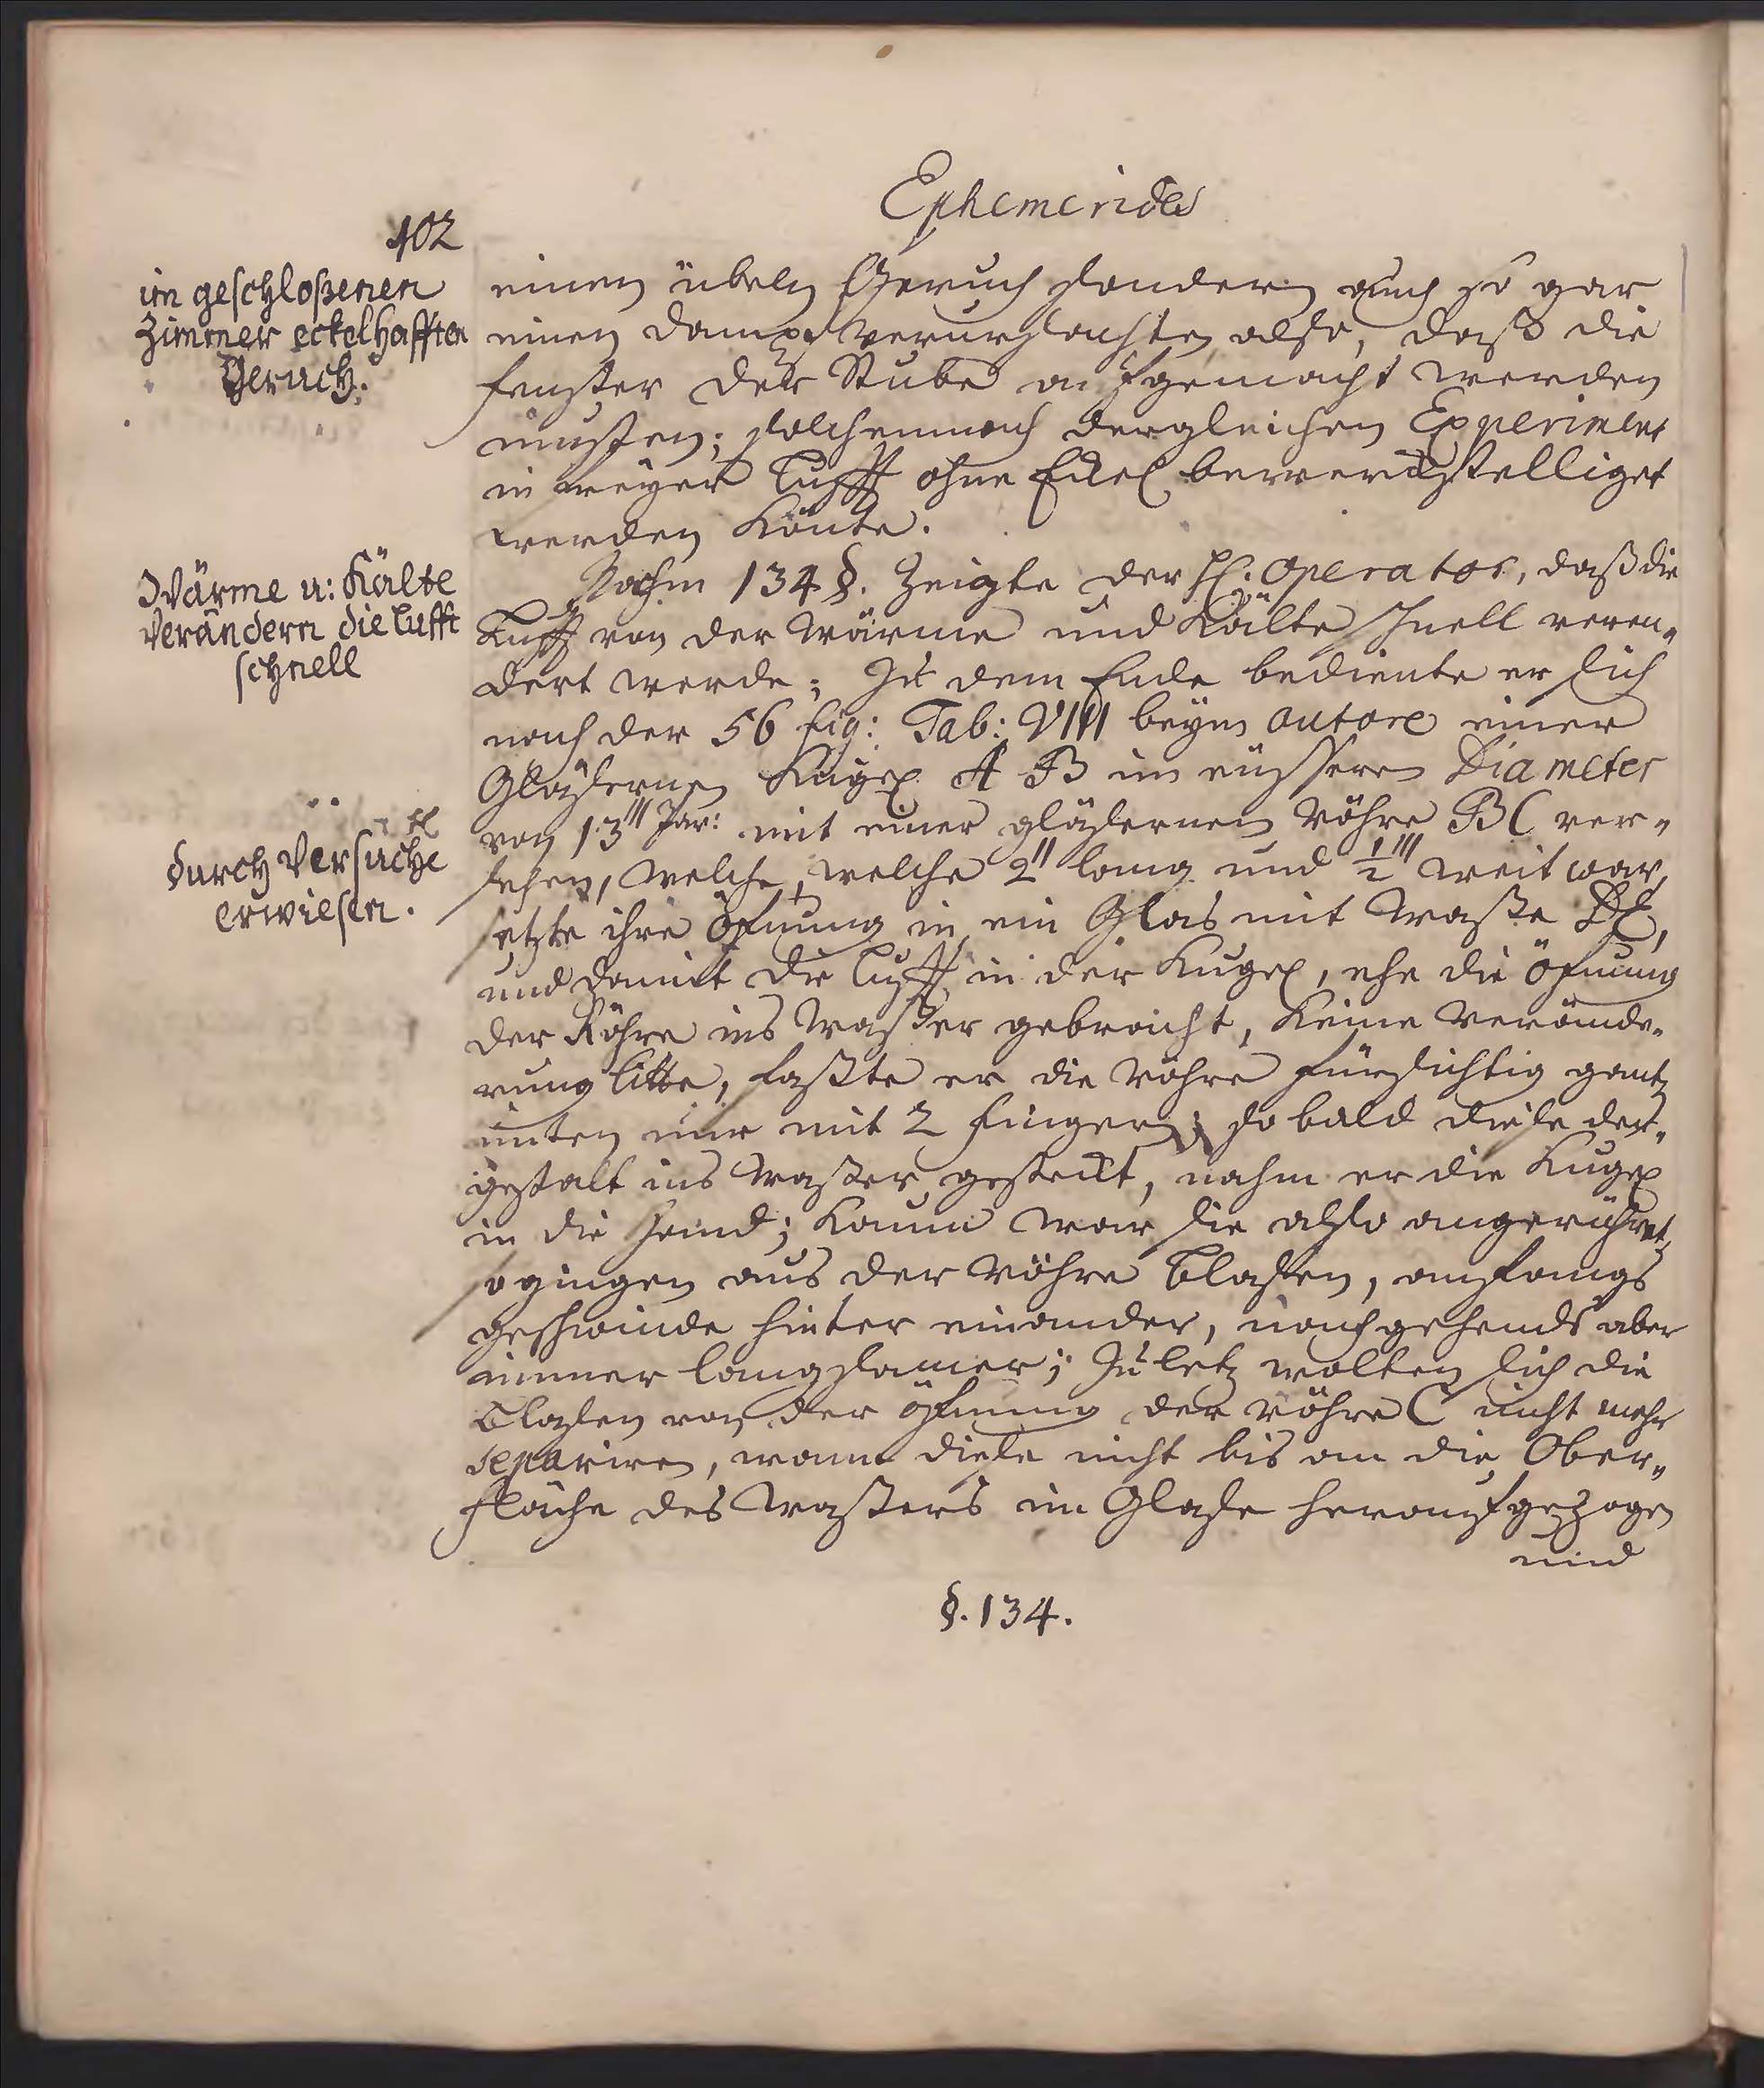 Ephemerides
402
im geschloßenen
Zimmer eckelhafften
Geruch.
einen übeln Geruch sondern auch so gar
einen dampf verursachten, also, daß die
fenster der Stube aufgemacht werden
musten; solchemnach dergleichen Experiment
in freyer Lufft ohne Eckel bewerckstelliget
werden könte.
Wärme u: Kälte
Verändern die Lufft
schnell
Nachm 134 §. Zeigte der H. Operator, daß die
Lufft von der Wärme und Kälte schnell verän„
dert werde; Zu dem Ende bediente er sich
nach der 56 fig: Tab: VIII beym autore einer
Gläsernen Kugel A B im eüssern Diameter
durch Versuche
erwiesen.
von 13''' Par: mit einer gläsernen Röhre BC ver„
sehen, welche, welche 2'' lang und ½''' weit war,
setzte ihre Öfnung in ein Glas mit Waße DE,
und damit die Lufft in der Kugel, ehe die Öfnung
der Röhre ins Waßer gebracht, keine Verände„
rung litte, faßte er die Röhre fürsichtig gantz
unten nur mit 2 fingern; so bald diese der„
gestalt ins Waßer gesteckt, nahm er die Kugel
in die Hand; kaum war sie also angerühret,
so gingen aus der Röhre Blasen, anfangs
geschwinde hinter einander, nachgehends aber
immer langsamer; Zu letz wolten sich die
Blasen von der öfnung der Röhre C nicht mehr
separiren, wann diese nicht bis an die Ober„
fläche des Waßers im Glase heraufgezogen
und
§. 134.